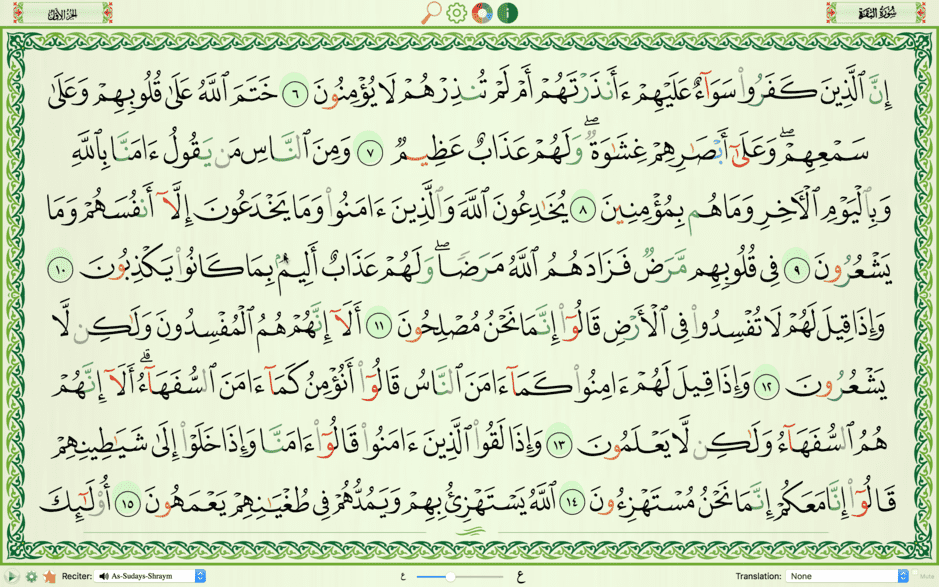 الجزء الأول
سورة البقرة
إِنَّ ٱلَّذِينَ كَفَرُوا۟ سَوَآءٌ عَلَيْهِمْ ءَأَنذَرْتَهُمْ أَمْ لَمْ تُنذِرْهُمْ لَا يُؤْمِنُونَ ٦ خَتَمَ ٱللَّهُ عَلَىٰ قُلُوبِهِمْ وَعَلَىٰ
سَمْعِهِمْ ۖ وَعَلَىٰٓ أَبْصَـٰرِهِمْ غِشَـٰوَةٌ ۖ وَلَهُمْ عَذَابٌ عَظِيمٌ ٧ وَمِنَ ٱلنَّاسِ مَن يَقُولُ ءَامَنَّا بِٱللَّهِ
وَبِٱلْيَوْمِ ٱلْـَٔاخِرِ وَمَا هُم بِمُؤْمِنِينَ ٨ يُخَـٰدِعُونَ ٱللَّهَ وَٱلَّذِينَ ءَامَنُوا۟ وَمَا يَخْدَعُونَ إِلَّآ أَنفُسَهُمْ وَمَا
يَشْعُرُونَ ٩ فِى قُلُوبِهِم مَّرَضٌ فَزَادَهُمُ ٱللَّهُ مَرَضًا ۖ وَلَهُمْ عَذَابٌ أَلِيمٌۢ بِمَا كَانُوا۟ يَكْذِبُونَ ١٠
وَإِذَا قِيلَ لَهُمْ لَا تُفْسِدُوا۟ فِى ٱلْأَرْضِ قَالُوٓا۟ إِنَّمَا نَحْنُ مُصْلِحُونَ ١١ أَلَآ إِنَّهُمْ هُمُ ٱلْمُفْسِدُونَ وَلَـٰكِن لَّا
يَشْعُرُونَ ١٢ وَإِذَا قِيلَ لَهُمْ ءَامِنُوا۟ كَمَآ ءَامَنَ ٱلنَّاسُ قَالُوٓا۟ أَنُؤْمِنُ كَمَآ ءَامَنَ ٱلسُّفَهَآءُ ۗ أَلَآ إِنَّهُمْ
هُمُ ٱلسُّفَهَآءُ وَلَـٰكِن لَّا يَعْلَمُونَ ١٣ وَإِذَا لَقُوا۟ ٱلَّذِينَ ءَامَنُوا۟ قَالُوٓا۟ ءَامَنَّا وَإِذَا خَلَوْا۟ إِلَىٰ شَيَـٰطِينِهِمْ
قَالُوٓا۟ إِنَّا مَعَكُمْ إِنَّمَا نَحْنُ مُسْتَهْزِءُونَ ١٤ ٱللَّهُ يَسْتَهْزِئُ بِهِمْ وَيَمُدُّهُمْ فِى طُغْيَـٰنِهِمْ يَعْمَهُونَ ١٥ أُو۟لَـٰٓئِكَ
Reciter: As-Sudays-Shraym ع ع Translation: None Mute